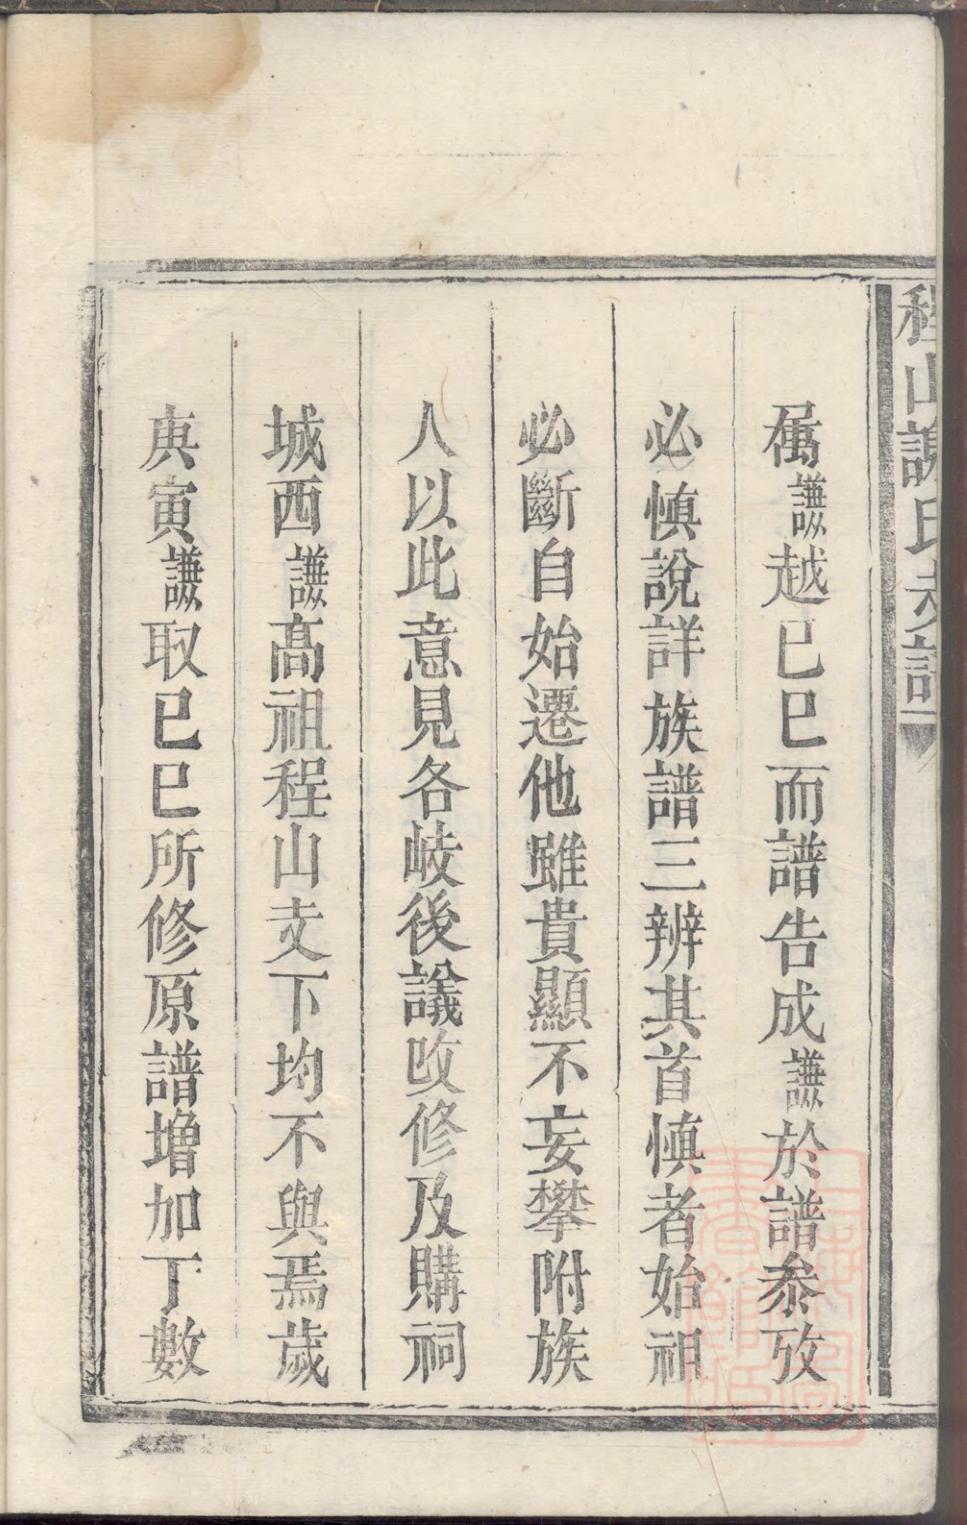 程山謝氏支譜
属謙越已巳而譜告成謙於譜叅攷
必慎說詳族譜三辨其首慎者始祖
必斷自始遷他雖貴顯不妄攀附族
人以此意見各岐後議改修及購祠
城西謙髙祖程山支下均不與焉歲
庚寅謙取已巳所修原譜增加丁數